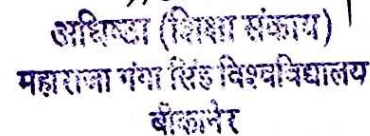 अधिष्ठाता (शिक्षा संकाय)
महाराजा गंगा सिंह विश्वविद्यालय
बीकानेर